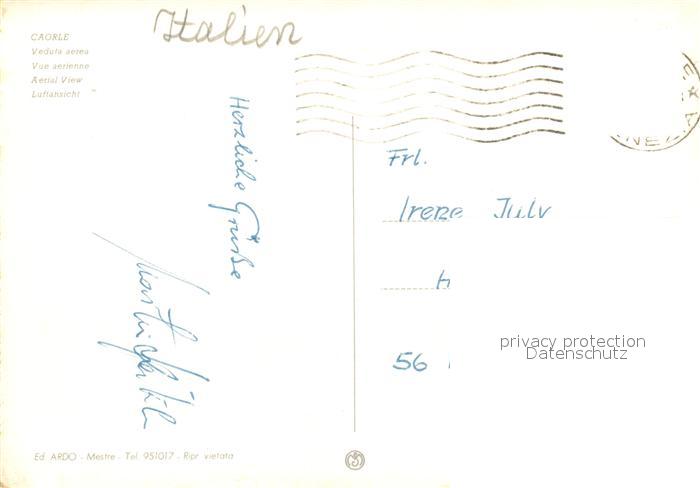 Italien
CAORLE
Veduta aerea
Vue aerienne
Aerial View
Luftansicht
Herzliche Grüße
Frl.
Irene
56
privacy protection
Datenschutz
Ed. ARDO - Mestre - Tel. 951017 - Ripr. vietata